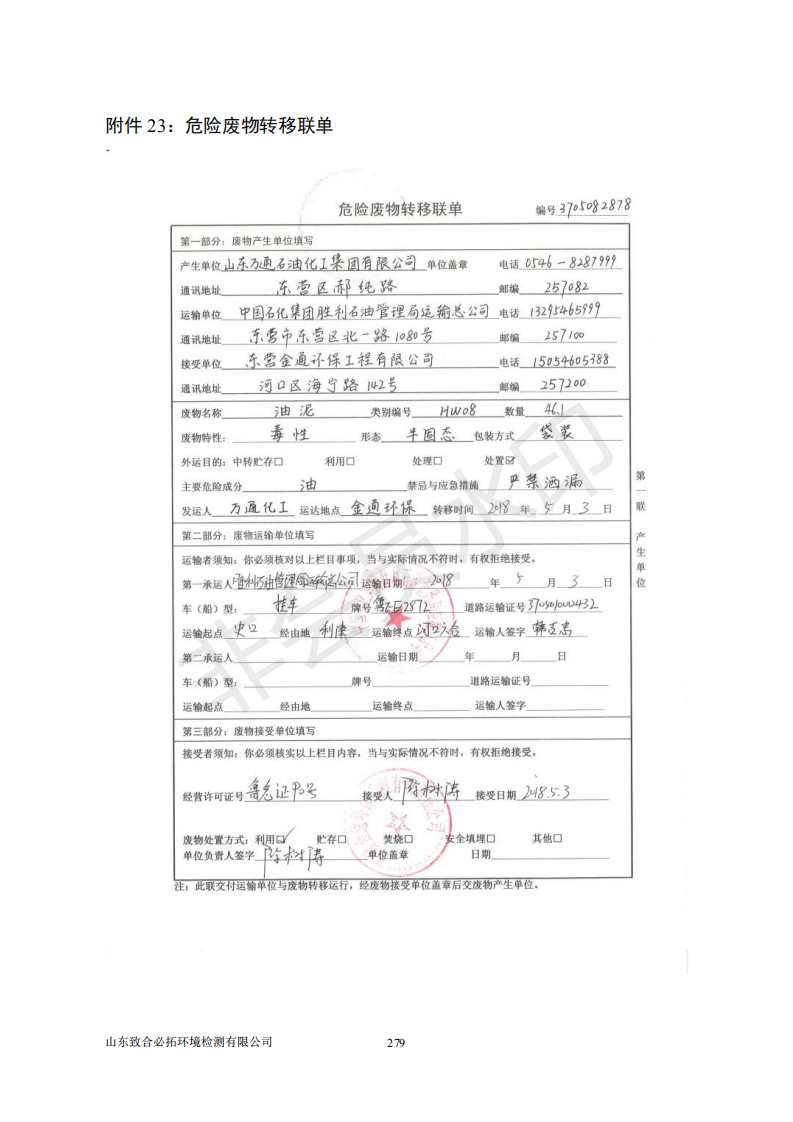 附件 23：危险废物转移联单
-
危险废物转移联单 编号 3705082878
第一部分：废物产生单位填写
产生单位 山东万通石油化工集团有限公司 单位盖章 电话 0546-8287999
通讯地址 东营区郝纯路 邮编 257082
运输单位 中国石化集团胜利石油管理局运输总公司 电话 13295465999
通讯地址 东营市东营区北一路1080号 邮编 257100
接受单位 东营金通环保工程有限公司 电话 15054605388
通讯地址 河口区海宁路142号 邮编 257200
废物名称 油泥 类别编号 HW08 数量 46.1
废物特性： 毒性 形态 半固态 包装方式 袋装
外运目的：中转贮存□ 利用□ 处理□ 处置☑
主要危险成分 油 禁忌与应急措施 严禁洒漏
发运人 万通化工 运达地点 金通环保 转移时间 2018 年 5 月 3 日
第二部分：废物运输单位填写
运输者须知：你必须核对以上栏目事项，当与实际情况不符时，有权拒绝接受。
第一承运人 胜利石油管理局运输总公司 运输日期 2018 年 5 月 3 日
车（船）型： 挂车 牌号 鲁E E2872 道路运输证号 370501000432
运输起点 史口 经由地 利津 运输终点 河口六合 运输人签字
第二承运人 运输日期 年 月 日
车（船）型： 牌号 道路运输证号
运输起点 经由地 运输终点 运输人签字
第三部分：废物接受单位填写
接受者须知：你必须核实以上栏目内容，当与实际情况不符时，有权拒绝接受。
经营许可证号 鲁危证90号 接受人 陈树涛 接受日期 2018.5.3
废物处置方式：利用☑ 贮存□ 焚烧□ 安全填埋□ 其他□
单位负责人签字 陈树涛 单位盖章 日期
注：此联交付运输单位与废物转移运行，经废物接受单位盖章后交废物产生单位。
第一联 产生单位
非会员水印
山东致合必拓环境检测有限公司 279